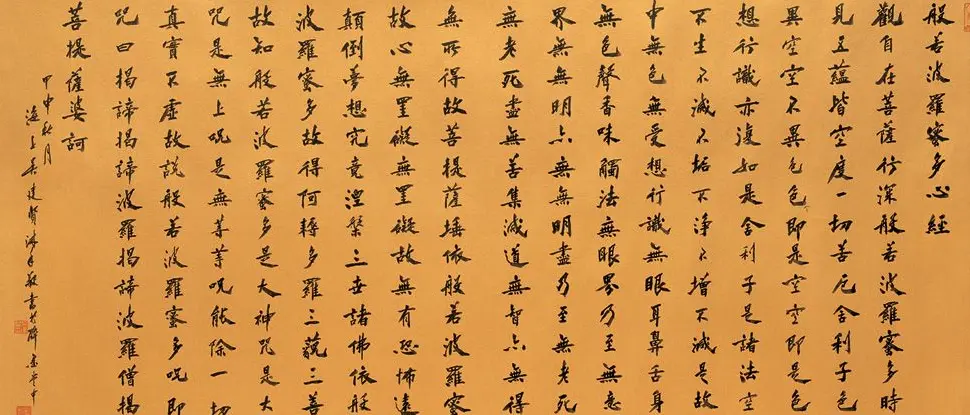 般若波羅蜜多心經
觀自在菩薩行深般若波羅蜜多時
見五蘊皆空度一切苦厄舍利子色
異空空不異色色即是空空即是色
想行識亦復如是舍利子是諸法空
不生不滅不垢不淨不增不減是故
中無色無受想行識無眼耳鼻舌身
無色聲香味觸法無眼界乃至無意
界無無明亦無無明盡乃至無老死
無老死盡無善集滅道無智亦無得
無所得故菩提薩埵依般若波羅蜜
故心無罣礙無罣礙故無有恐怖遠
顛倒夢想究竟涅槃三世諸佛依般
波羅蜜多故得阿耨多羅三藐三菩
故知般若波羅蜜多是大神咒是大
咒是無上咒是無等等咒能除一切
真實不虛故說般若波羅蜜多咒即
咒曰揭諦揭諦波羅揭諦波羅僧揭
菩提薩婆訶
甲申秋月
滬上吳建賢沐手敬書於